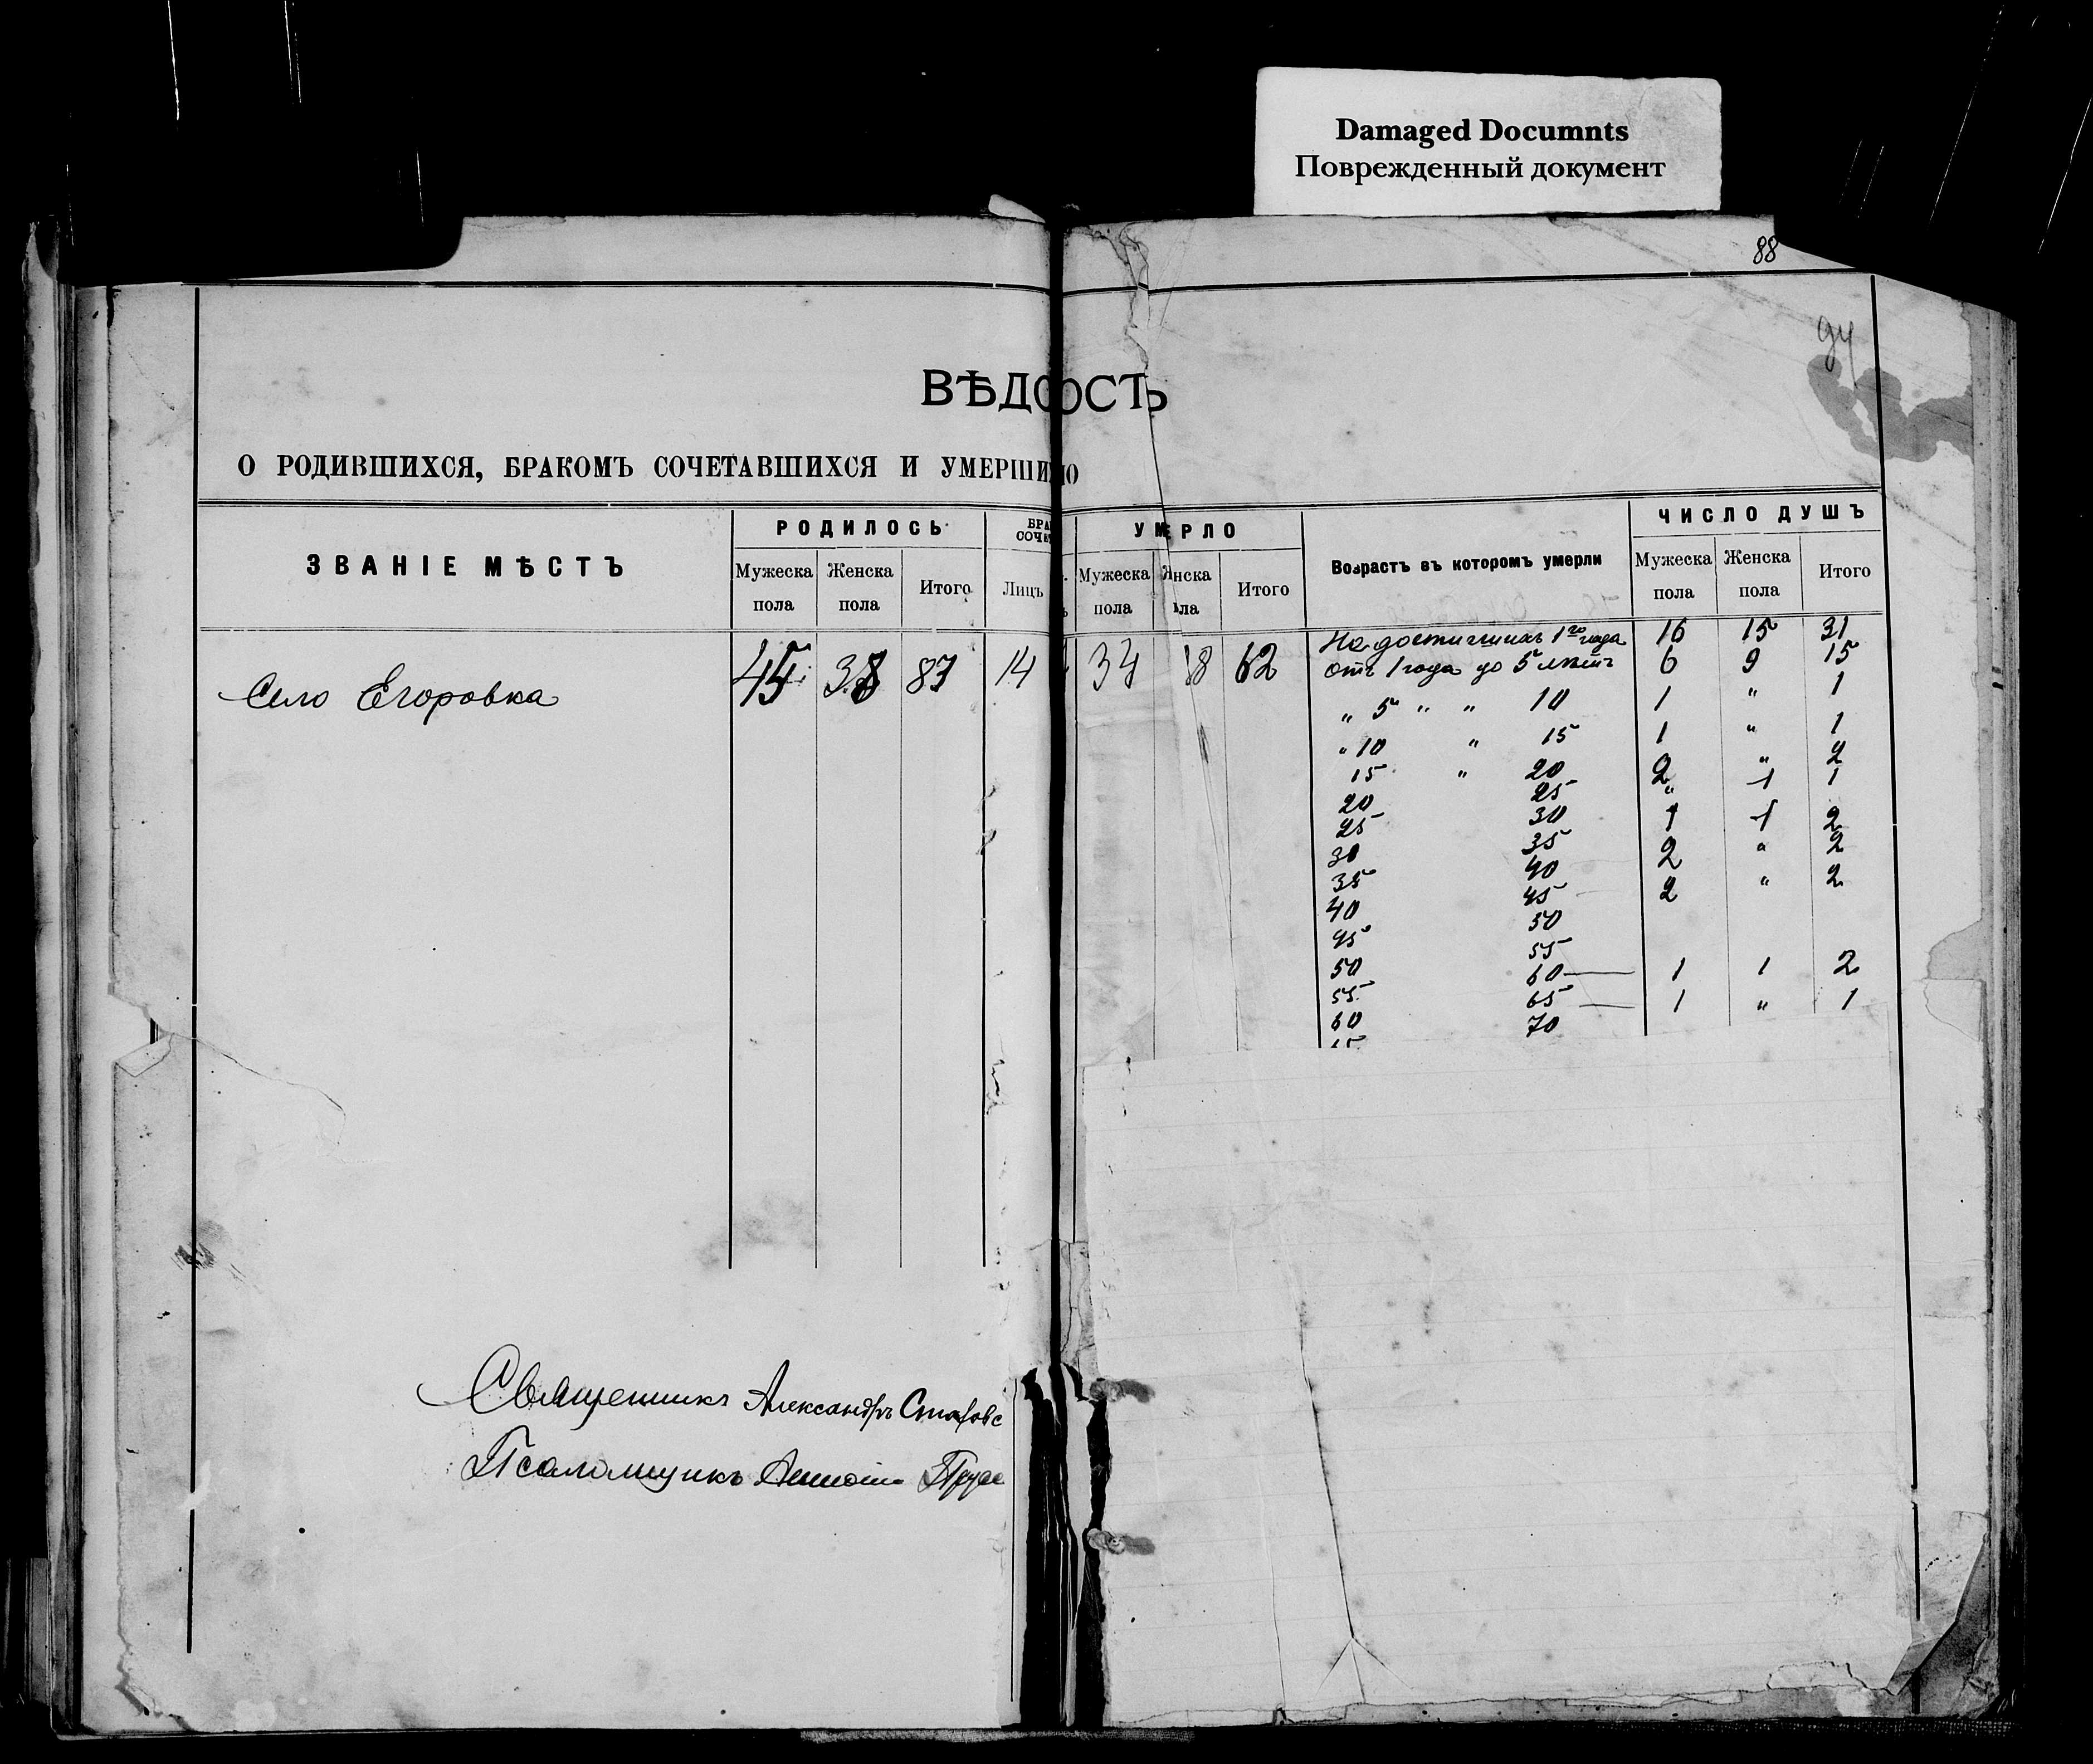 Damaged Documnts
Поврежденный документ
88
94
ВѢДО ОСТЬ
О РОДИВШИХСЯ, БРАКОМЪ СОЧЕТАВШИХСЯ И УМЕРШИ
ЗВАНІЕ МѢСТЪ РОДИЛОСЬ БРА СОЧЕ УМЕРЛО Возрастъ въ которомъ умерли ЧИСЛО ДУШЪ
Мужеска пола Женска пола Итого Лицъ Мужеска пола нска ла Итого Мужеска пола Женска пола Итого
Село Егоровка 45 38 83 14 34 8 62
Не достигшихъ 1го года 16 15 31
отъ 1 года до 5 лѣтъ 6 9 15
" 5 " " 10 1 " 1
" 10 " 15 1 " 1
15 " 20 2 " 2
20 25 " 1 1
25 30 1 1 2
30 35 2 " 2
35 40 2 " 2
40 45
45 50
50 55
55 60 1 1 2
60 65 1 " 1
70
Священникъ Александръ
Псаломщикъ